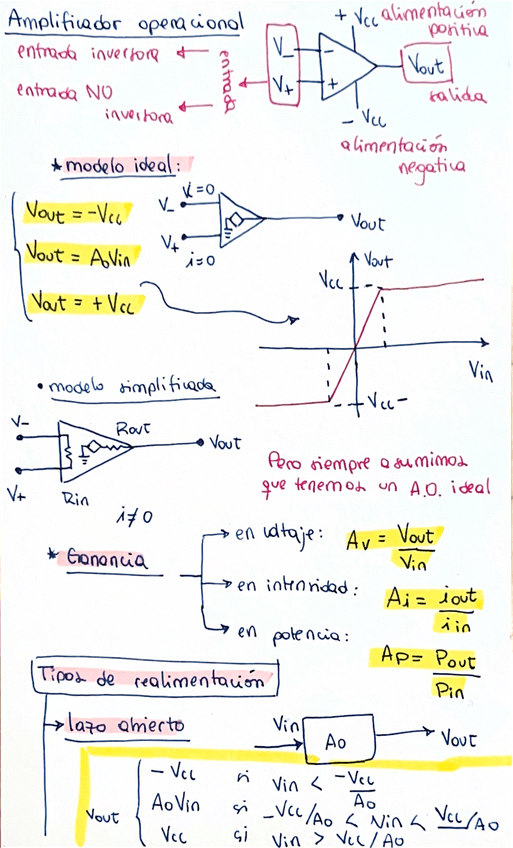 Amplificador operacional
+ Vcc alimentación
positiva
entrada inversora
V-
-
entrada
Vout
entrada NO
inversora
V+
+
salida
- Vcc
alimentación
negativa
* modelo ideal:
Vout = -Vcc
V-
i=0
Vout = AoVin
Vout
V+
i=0
Vout = +Vcc
Vout
Vcc
Vin
- Vcc -
• modelo simplificado
V-
Rout
Vout
V+
Rin
i≠0
Pero siempre asumimos
que tenemos un A.O. ideal
* Ganancia
en voltaje: Av = Vout/Vin
en intensidad: Ai = iout/iin
en potencia: Ap = Pout/Pin
Tipos de realimentación
lazo abierto
Vin
Ao
Vout
Vout
- Vcc si Vin < -Vcc/Ao
AoVin si -Vcc/Ao < Vin < Vcc/Ao
Vcc si Vin > Vcc/Ao